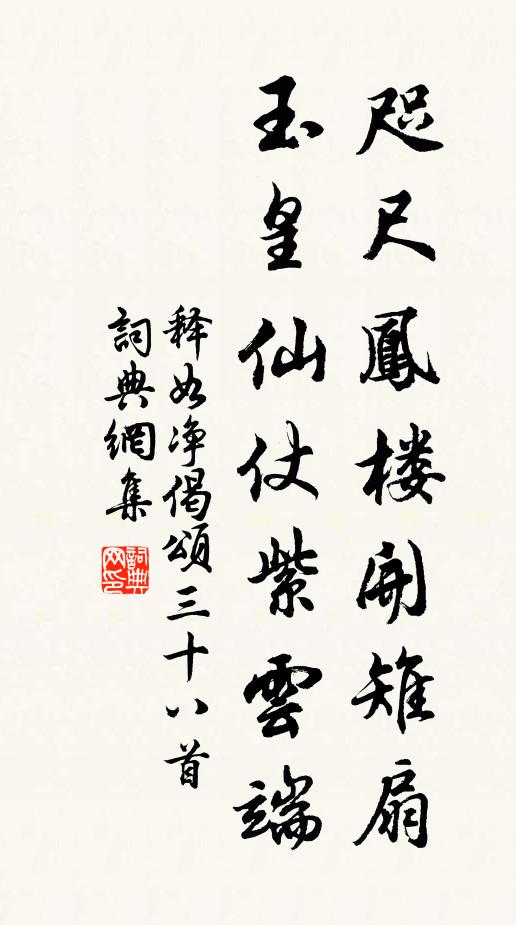 咫尺鳳楼開雉扇
玉皇仙仗紫雲端
释如净偈頌三十八首
詞典網集
詞典网印